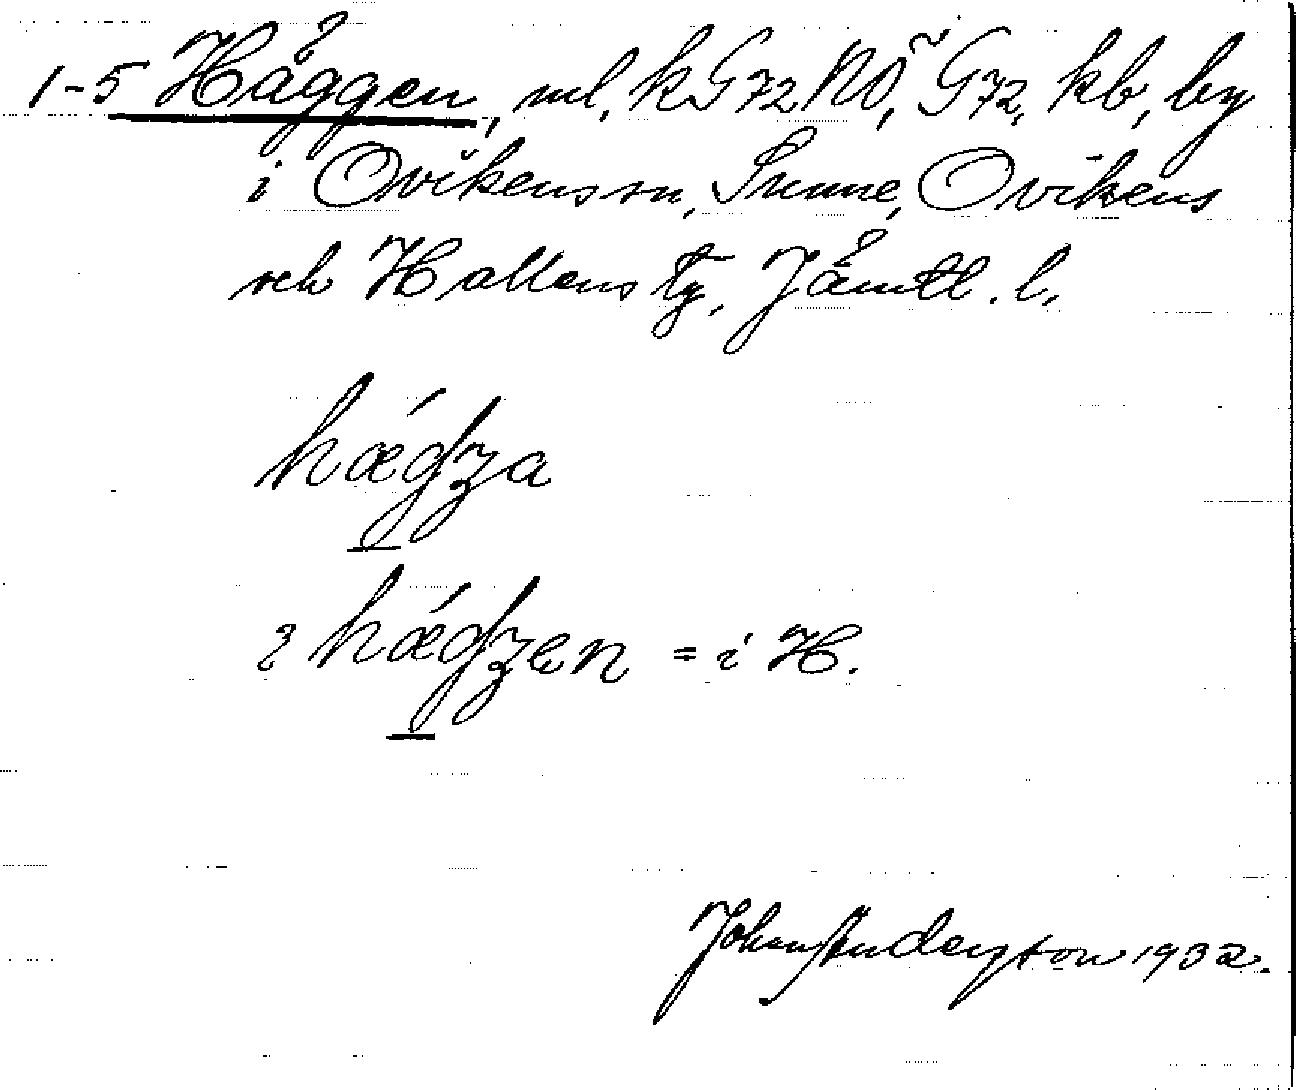 1-5 Häggen, ml, kG72NÖ, G72, kb, by
i Ovikens sn, Sunne, Ovikens
och Hallens tg, Jämtl. l.
hǽgʒa
ɩ hǽgʒen = i H.
Johan Anderston 1932.